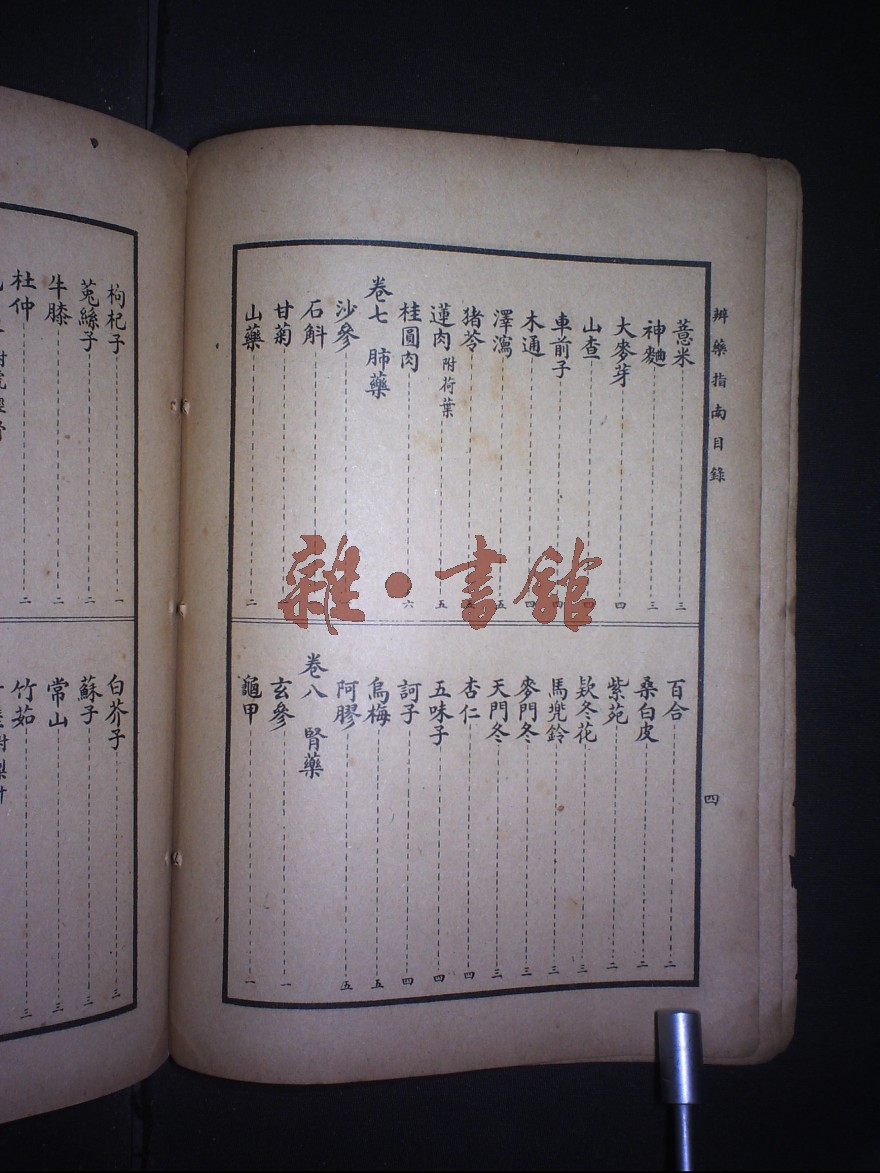 辨藥指南目錄
四
薏米 三
神麯 三
大麥芽 四
山查 四
車前子 四
木通 四
澤瀉 五
猪苓 五
蓮肉 附荷葉 五
桂圓肉 六
卷七 肺藥
沙參
石斛
甘菊
山藥 二
百合 二
桑白皮 二
紫苑 二
欵冬花 三
馬兜鈴 三
麥門冬 三
天門冬 三
杏仁 四
五味子 四
訶子 四
烏梅 五
阿膠 五
卷八 腎藥
玄參 一
龜甲 一
枸杞子 一
菟絲子 二
牛膝 二
杜仲 二
白芥子 三
蘇子 三
常山 三
竹茹 三
雜·書館